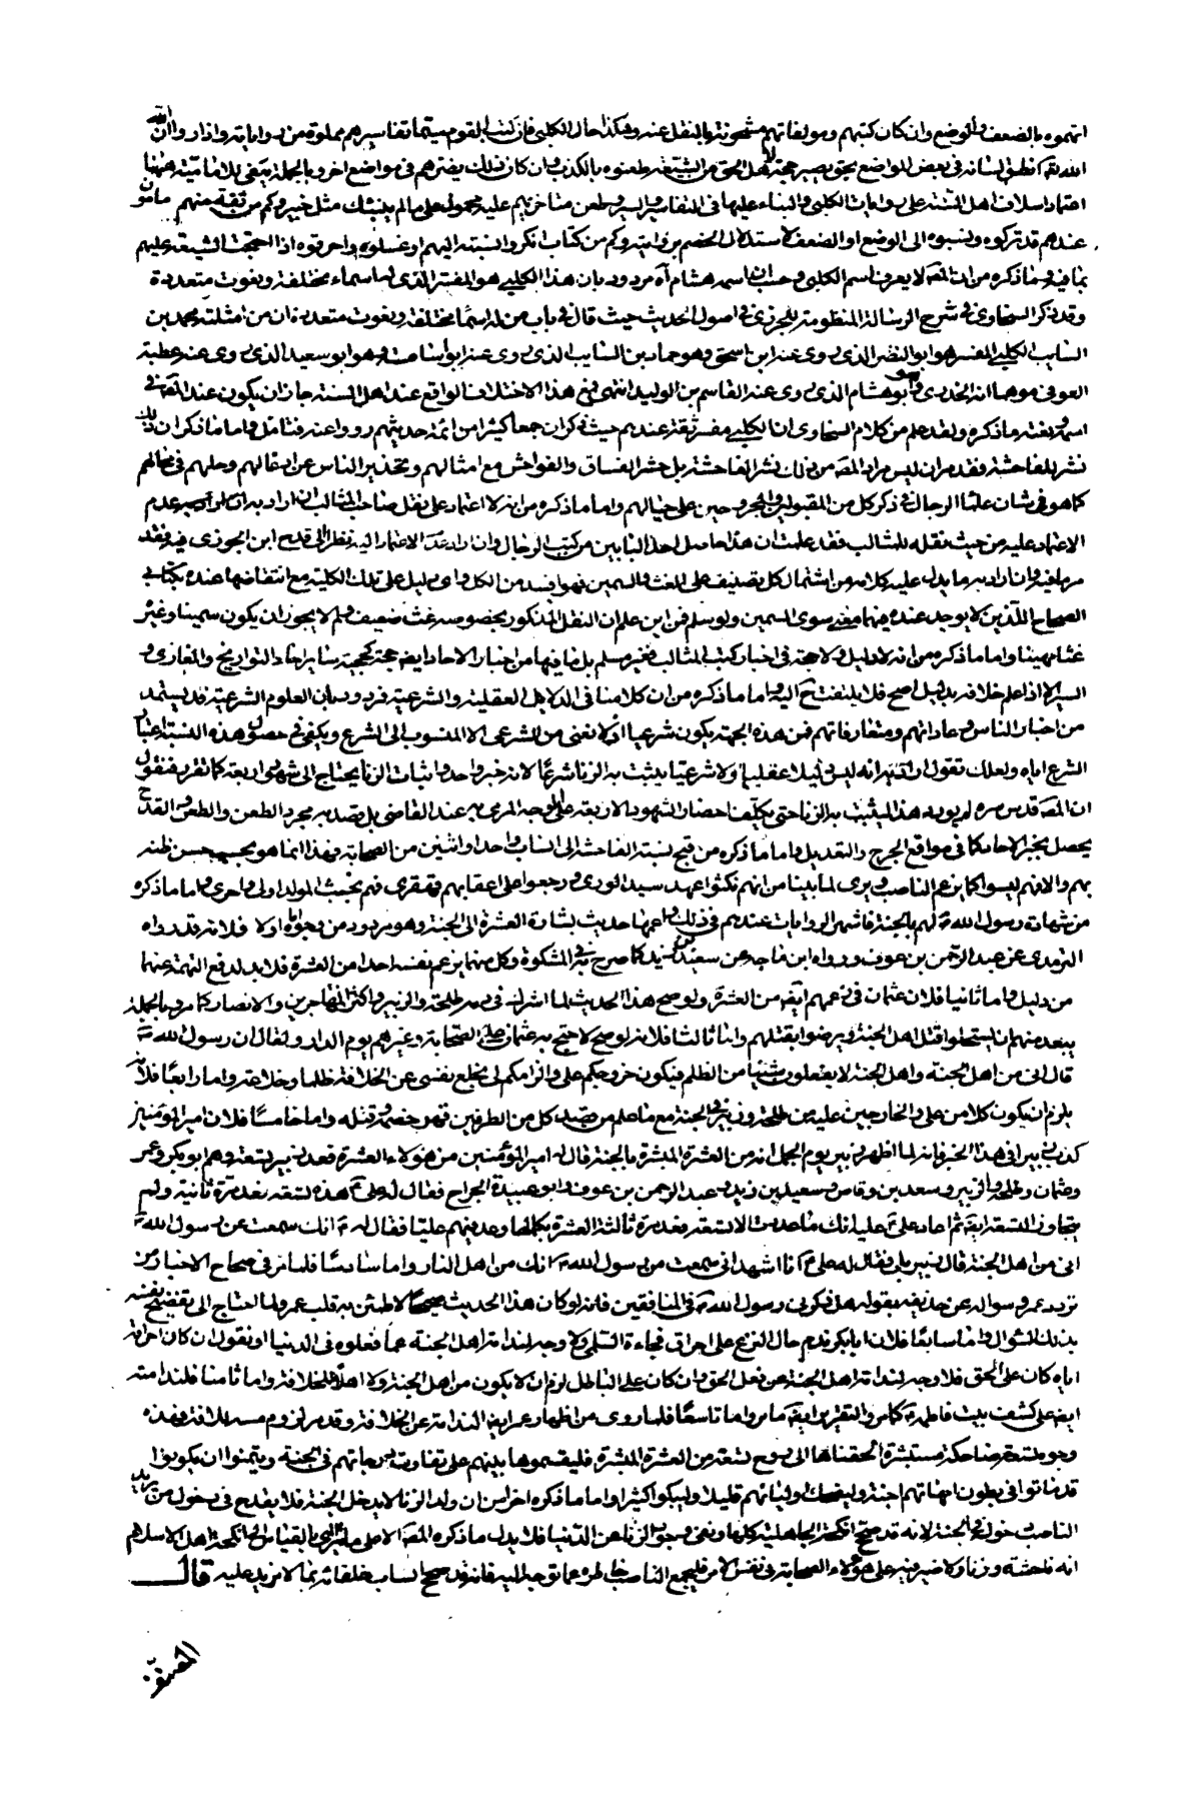 اتهموه بالضعف والوضع وان كان كتبهم ومولفاتهم مشحونة بالنقل عنه وهكذا حال الكلبى فان كتب القوم سيما تفاسيرهم مملوة من رواياته واذا رووا ان
الله تعه انطق لسانه فى بعض المواضع بحق يصير حجة لاهل الحق من الشيعة طعنوه بالكذب وان كان ذلك يضرهم فى مواضع اخر وبالجملة
اعتماد اسلاف اهل السنة على روايات الكلبى والبناء عليها فى التفاسير والسير وطعن متاخريهم عليه محمول على ما لم ينبئك مثل خبير وكم من ثقة منهم مامون
عندهم قد تركوه ونسبوه الى الوضع او الضعف لاستدلال الخصم بروايته وكم من كتاب انكروا نسبته اليهم او غسلوه واحرقوه اذا احتجت الشيعة عليهم
بما فيه وما ذكره من ان المصه لا يعرف اسم الكلبى وحسب ان اسمه هشام آه مردود بان هذا الكلبى هو المفسر الذى له اسماء مختلفة ونعوت متعددة
وقد ذكر السخاوى فى شرح الرسالة المنظومة للجزرى فى اصول الحديث حيث قال فى باب من له اسماء مختلفة ونعوت متعددة ان من امثلته محمد بن
السايب الكلبى المفسر هو ابو النضر الذى روى عنه ابن اسحق وهو حماد بن السايب الذى روى عنه ابو اسامة وهو ابو سعيد الذى روى عنه عطية
العوفى موهما انه الخدرى وهو ابو هشام الذى روى عنه القاسم بن الوليد انتهى فمع هذا الاختلاف الواقع عند اهل السنة جاز ان يكون عند المصه فى
اسمه ونعته ما ذكره ولقد علم من كلام السخاوى ان الكلبى مفسر ثقة عندهم حيث ذكر ان جمعا كثيرا من ائمة حديثهم رووا عنه فتامل واما ما ذكر ان ذلك
نشر للفاحشة فقد مر ان ليس مراد المصه من ذلك نشر الفاحشة بل حشر الفساق والفواحش مع امثالهم وتحذير الناس عن افعالهم
كما هو فى شان علماء الرجال فى ذكر كل من المقبولين والمجروحين على حيالهم واما ما ذكره من انه لا اعتماد على نقل صاحب المثالب ان اراد به عدم
الاعتماد عليه من حيث نقله للمثالب فقد علمت ان هذا حاصل احد البابين من كتب الرجال وان اراد عدم الاعتماد اليه نظرا الى قدح ابن الجوزى فيه فقد
مر ما فيه وان اراد به ما يدل عليه كلامه من اشتمال كل تصنيف على الغث والسمين فهو ايضه من الكل واى دليل على تلك الكلية مع انتقاضها عنده بكتابى
الصحاح اللذين لا يوجد عنده فيهما معنى سوى السمين ولو سلم فمن اين علم ان النقل المذكور بخصوصه غث ضعيف ولم لا يجوز ان يكون سمينا وغيره
غثا مهينا واما ما ذكره من انه لا دليل ولا حجة فى اخبار كتب المثالب فغير مسلم بل ما فيها من اخبار الاحاد ايضه حجة كحجية ساير اخباد التواريخ والمغازى و
السير الا اذا علم خلافه بدليل اصح فلا يلتفت اليه واما ما ذكره من ان كلامنا فى الدلايل العقلية والشرعية فمردود بان العلوم الشرعية قد يستمد
من اخبار الناس وعاداتهم ومتعارفاتهم فمن هذه الجهة يكون شرعيا اذ لا نعنى من الشرعى الا المنسوب الى الشرع ويكفى فى حصول هذه النسبة اعتبار
الشرع اياه ولعلك تقول انا نريد انه ليس دليلا عقليا ولا شرعيا يثبت به الزنا شرعا لانه خبر واحد واثبات الزنا يحتاج الى شهود اربعة كما تقرر فنقول
ان المصه قدس سره لم يورد هذا ليثبت به الزنا حتى يكلف احضار الشهود الاربعة على الوجه المرعى به عند القاضى بل قصد به مجرد الطعن والطعن والقدح
يحصل بخبر الاحاد كما فى مواقع الجرح والتعديل واما ما ذكره من قبح نسبة الفاحشة الى انساب واحد او اثنين من الصحابة فهذا انما هو بحسب حسن ظنه
بهم والا فهم ليسوا كما يزعم الناصب ويرى لما بينا من انهم نكثوا عهد سيد الورى ورجعوا على اعقابهم قهقرى فهم بخبث المولد اولى واحرى واما ما ذكره
من شهادة رسول الله صه لهم بالجنة فاشهر الروايات عندهم فى ذلك واعمها حديث بشارة العشرة الى الجنة وهو مردود من وجوه اما اولا فلانه قد رواه
الترمدى عن عبد الرحمن بن عوف ورواه ابن ماجه عن سعيد بن زيد كما صرح به فى المشكوة وكل منهما يزعم نفسه احدا من العشرة فلا بد لدفع التهمة عنهما
من دليل واما ثانيا فلان عثمان فى زعمهم ايضه من العشرة ولو صح هذا الحديث لما اشرك فى دمه طلحة والزبير واكثر المهاجرين والانصار كما مر وبالجملة
يبعد منهم ان يستحلوا قتل اهل الجنة ويرضوا بقتلهم واما ثالثا فلانه لو صح لاحتج به عثمان على الصحابة وغيرهم يوم الدار ولقال ان رسول الله صه
قال انى من اهل الجنة واهل الجنة لا يفعلون شيئا من الظلم فيكون خروجكم على والزامكم لى بخلع نفسى عن الخلافة ظلما وخلاعة واما رابعا فلانه
يلزم ان يكون كلا من على والخارجين عليه من طلحة وزبير فى الجنة مع ما علم من قصد كل من الطرفين قهر خصمه وقتله واما خامسا فلان امير المؤمنين
كذب زبيرا فى هذا الخبر فانه لما اظهر زبير يوم الجمل انه من العشرة المبشرة بالجنة قال له امير المؤمنين من هؤلاء العشرة فعد زبير تسعة وهم ابو بكر وعمر
وعثمان وطلحة والزبير وسعد بن وقاص وسعيد بن زيد وعبد الرحمن بن عوف وابو عبيدة الجراح فقال له على عه هذه تسعة فعد مرة ثانية ولم
يتجاوز التسعة ايضه ثم اعاد على عه عليه انك ما عددت الا تسعة فعد مرة ثالثة العشرة بكمالها وعد فيهم عليا فقال له عه انك سمعت عن رسول الله صه
انى من اهل الجنة قال زبير بلى فقال له على عه انا اشهد انى سمعت من رسول الله صه انك من اهل النار واما سادسا فلما مر فى صحاح الاخبار من
تردد عمر وسواله عن حذيفة بقوله هل ذكرنى رسول الله صه فى المنافقين فانه لو كان هذا الحديث صحيحا لاطمئن به قلب عمر ولما احتاج الى تفضيح نفسه
بذلك السؤال واما سابعا فلان ابا بكر ندم حال النزع على احراق فجاءة السلمى ولا وجه لندامة اهل الجنة عما فعلوه فى الدنيا او نقول ان كان احراقه
اياه كان على الحق فلا وجه لندامة اهل الجنة عن فعل الحق وان كان على الباطل لزم ان لا يكون من اهل الجنة ولا اهلا للخلافة واما ثامنا فلندامته
ايضه على كشف بيت فاطمة عه كما مر والتقرير ايضه ما مر واما تاسعا فلما روى من اظهار عمر ايضه الندامة عن الخلافة وقد مر لزوم فهذه
وجوه تسعة ضاحكة مستبشرة الحقناها الى روح تسعة من العشرة المبشرة فليقسموها بينهم على تفاوت درجاتهم فى الجنة ويتمنوا ان يكونوا
قد ماتوا فى بطون امهاتهم اجنة وليضحك اولياؤهم قليلا وليبكوا كثيرا واما ما ذكره اخرا من ان ولد الزنا لا يدخل الجنة فلا يقدح فى دخول من يريد
الناصب دخوله فى الجنة لانه قد صحح انكحة الجاهلية كلها ونفى وجود الزنا عن الدنيا فلا يدل ما ذكره المصه الا على بالقياس الى انكحة اهل الاسلام
انه فاحشة وزنا ولا ضير فيه على هؤلاء الصحابة فى نفس الامر فليجمع الناصب خاطره عما توجه اليه فانه قد صحح انساب خلفائه بما لا مزيد عليه قال
المصنف